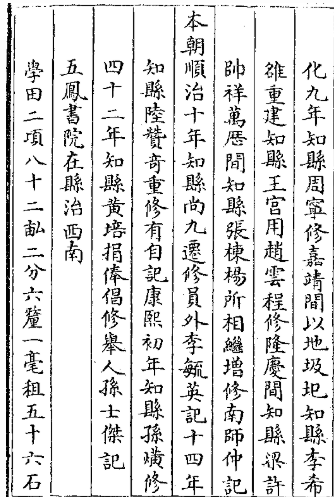 化九年知縣周寧修嘉靖間以地圾圮知縣李希
雒重建知縣王宮用趙雲程修隆慶間知縣梁許
帥祥萬厯間知縣張棟楊所相繼增修南師仲記
本朝順治十年知縣尚九遷修員外李毓英記十四年
知縣陸贊奇重修有自記康熙初年知縣孫爌修
四十二年知縣黃培捐俸倡修舉人孫士傑記
五鳳書院在縣治西南
學田二頃八十二畝二分六釐一毫租五十六石